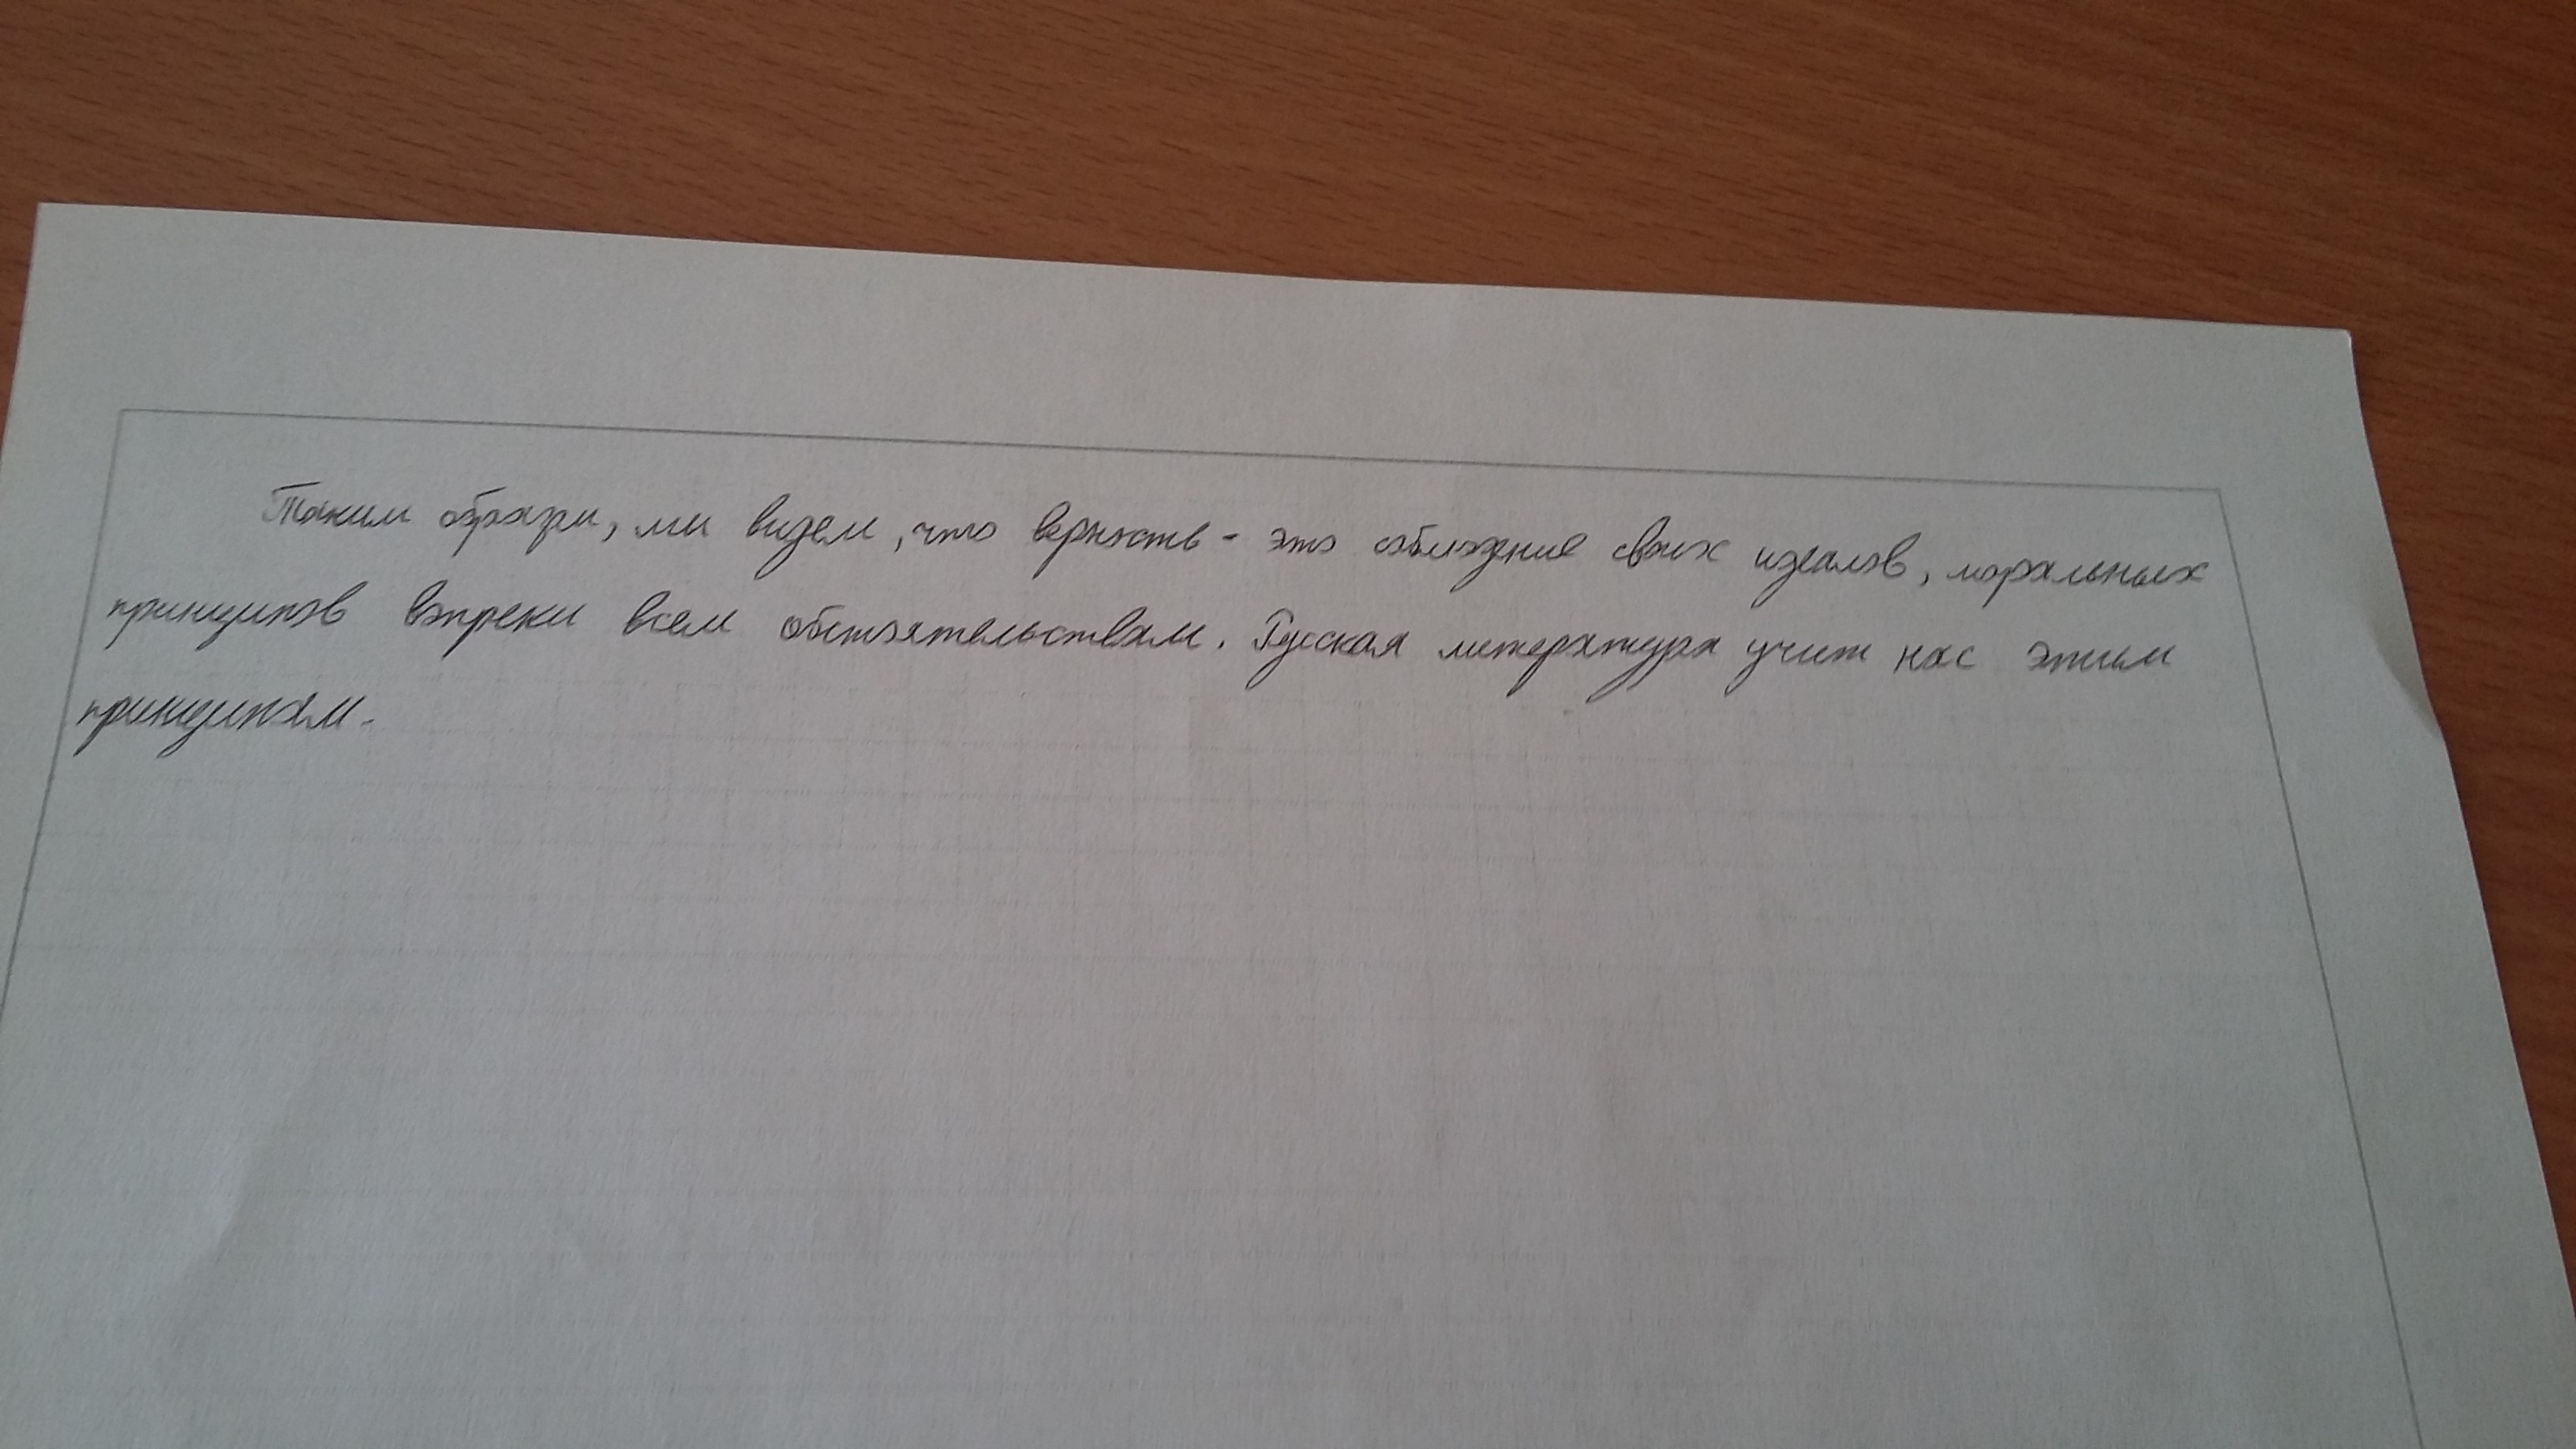 Таким образом, мы видем, что верность - это соблюдение своих идеалов, моральных
принципов вопреки всем обстоятельствам. Русская литература учит нас этим
принципам.